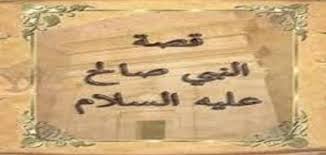 قصة
النبي صالح
عليه السلام